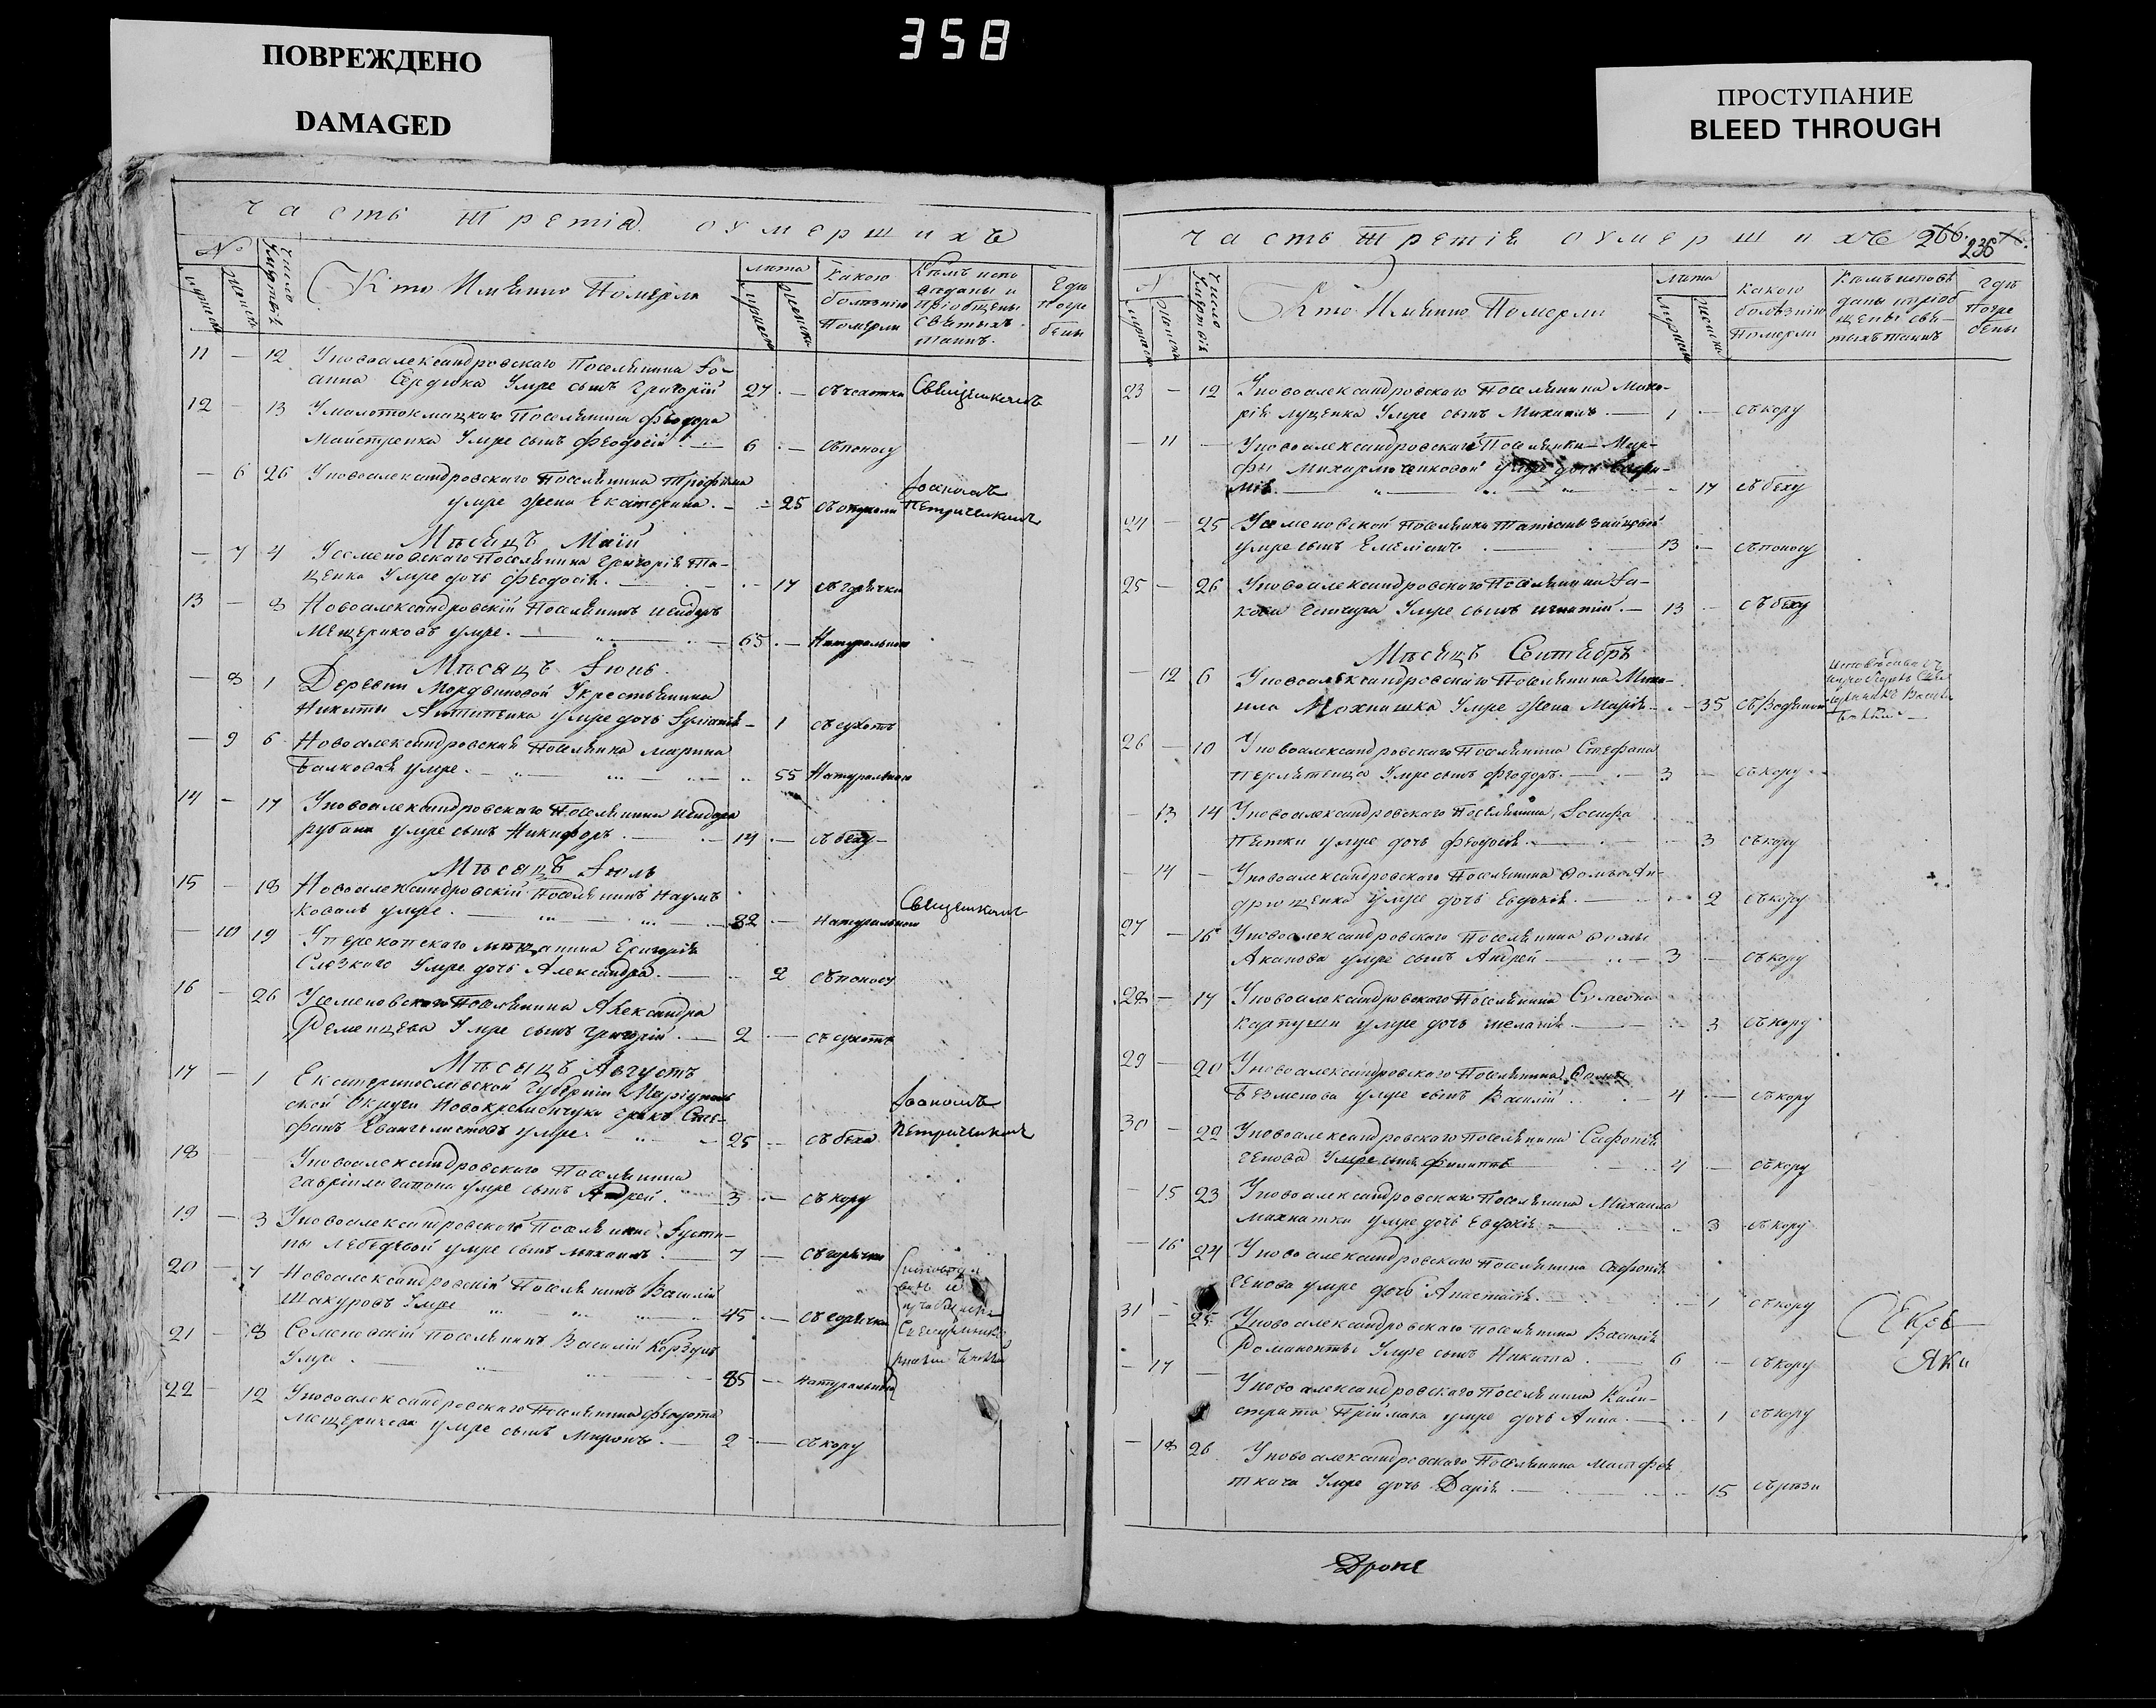 358
ПОВРЕЖДЕНО
DAMAGED
ПРОСТУПАНИЕ
BLEED THROUGH
часть третія оумершихъ
№
Число смертей
Кто Имянно Померли
лѣта
Какою
болѣзнію
Померли
Кѣмъ испо
вѣданы и
пріобщены
святыхъ
таинъ.
Гдѣ
Погре
бены
11 — 12 Уновоалександровскаго Поселянина Іо-
анна Сердюка Умре сынъ Григорій 27 — съчахотки Священикомъ
12 — 13 Умалотокмацкаго Поселянина Феодора
Майстренка Умре сынъ Феодосій — 6 — съпоносу
— 6 26 Уновоалександровскаго Поселянина Трофима
умре жена Екатерина. — 25 съопухоли Іоанномъ Петриченкомъ
Мѣсяцъ Маій
— 7 4 Усеменовскаго Поселянина Григорія Та-
ценка Умре дочь Феодосія. — 17 съгорячки
13 — 8 Новоалександровскій Поселянинъ Исидоръ
Мещериковъ умре. — 65 — Натурально
Мѣсяцъ Іюнь
— 8 1 Деревни Мордвиновой Укрестьянина
Никиты Антипенка умре дочь Іуліанія — 1 съсухотъ
— 9 6 Новоалександровская Поселянка Марина
Балковая умре. — 55 Натурально
14 — 17 Уновоалександровскаго Поселянина Исидора
рубана умре сынъ Никифоръ. — 14 — събеху
Мѣсяцъ Іюль
15 — 18 Новоалександровскій Поселянинъ Наумъ
Коваль умре. — 82 — Натурально Священикомъ
— 10 19 Уперекопскаго мѣщанина Григорія
Слезкаго Умре дочь Александра. — 2 съпоносу
16 — 26 Усеменовскаго Поселянина Александра
Деменцева Умре сынъ Григорій. — 2 — съсухотъ
Мѣсяцъ Августъ
17 — 1 Екатеринославской Губерніи Маріуполь
ской Округи Новокременчука грекъ Сте-
фанъ Евангелистовъ умре. — 25 — събеха Іоанномъ Петриченкомъ
18 — — Уновоалександровскаго Поселянина
Гавріила Гапона умре сынъ Андрей. 3 — съкору
19 — 3 Уновоалександровской Поселянки Іусти-
ны Лебедевой умре сынъ Михаилъ. — 7 — съгорячки
20 — 7 Новоалександровскій Поселянинъ Василій
Шакуровъ Умре 45 — съгорячки
21 8 Семеновскій Поселянинъ Василій Корзунъ
Умре. — 85 — Натурально
22 — 12 Уновоалександровскаго Поселянина Федота
Мещерикова умре сынъ Миронъ. — 2 — съкору
часть третія оумершихъ 266. 236
№
Число смертей
Кто Имянно Померли
лѣта
Какою
болѣзнію
Померли
Кѣмъ исповѣ
даны и пріоб
щены свя-
тыхъ таинъ
Гдѣ
Погре
бены
23 — 12 Уновоалександровскаго Поселянина Мака-
рія Луценка Умре сынъ Михаилъ. — 1 — съкору
— 11 — Уновоалександровской Поселянки Мар-
фы Михайлюченковой умре дочь Евфи-
мія. — 17 събеху
24 — 25 Усеменовской поселянки Татіаны Зайцовой
умре сынъ Емеліанъ. — 13 — съпоносу
25 — 26 Уновоалександровскаго Поселянина Іа-
кова Умре сынъ Игнатій. — 13 — събеху
Мѣсяцъ Сентябрь
— 12 6 Уновоалександровскаго Поселянина Миха-
ила Мохнашка Умре жена Марія — 35 съводяной
26 — 10 Уновоалександровскаго Поселянина Стефана
Умре сынъ Феодоръ. — 3 — съкору
— 13 14 Уновоалександровскаго Поселянина Іосифа
Петки умре дочь Феодосія. — 3 съкору
— 14 — Уновоалександровскаго Поселянина Фомы Ан-
дрющенка умре дочь Евдокія. — 2 съкору
27 — 16 Уновоалександровскаго Поселянина Фомы
Аканова умре сынъ Андрей — 3 — съкору
28 — 17 Уновоалександровскаго Поселянина Симеона
Картуши умре дочь Меланія. — 3 съкору
29 — 20 Уновоалександровскаго Поселянина Фомы
Безменова умре сынъ Василій — 4 — съкору
30 — 22 Уновоалександровскаго Поселянина Сафонія
Генова Умре сынъ Филиппъ — 4 — съкору
— 15 23 Уновоалександровскаго Поселянина Михаила
Махнатки умре дочь Евдокія. — 3 съкору
— 16 24 Уновоалександровскаго Поселянина Сафонія
Генова умре дочь Анастасія. — 1 съкору
31 — 25 Уновоалександровскаго поселянина Василія
Умре сынъ Никита. — 6 — съкору
— 17 — Уновоалександровскаго Поселянина Кали-
страта Пріймака умре дочь Анна. — 1 съкору
— 18 26 Уновоалександровскаго Поселянина Матфея
ткача Умре дочь Дарія — 15 съ